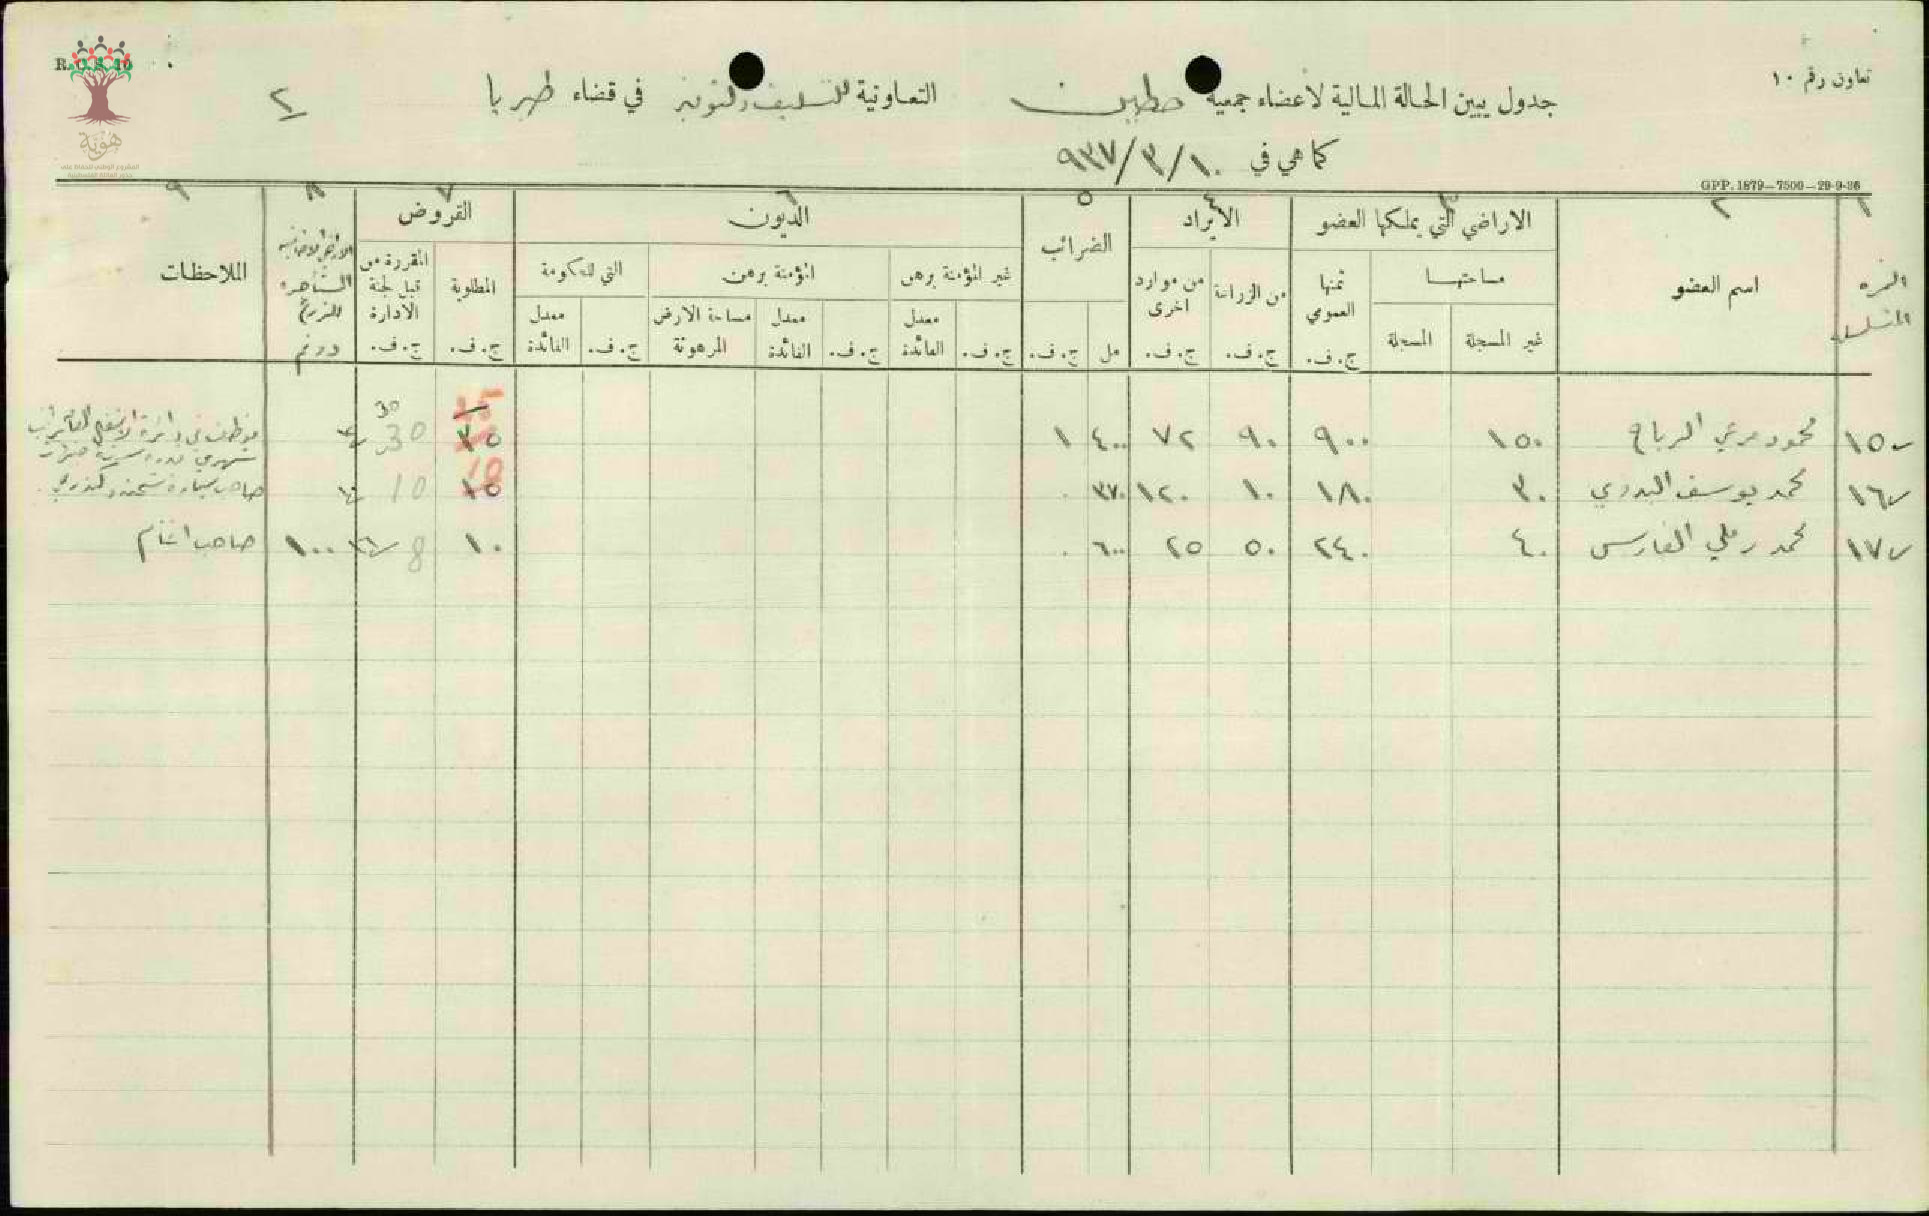 R.C.S. 10
تعاون رقم ١٠
جدول يبين الحالة المالية لأعضاء جمعية حطين التعاونية للتسليف والتوفير في قضاء طبريا
٢
كما هي في ١٠/٣/٩٣٧
هوية
GPP. 1879—7500—29-9-36
١ ٢ ٣ ٤ ٥ ٦ ٧ ٨ ٩
النمره المتسلسله
اسم العضو
الاراضي التي يملكها العضو
مساحتها
غير المسجلة
المسجلة
ثمنها العمومي ج. ف.
الايراد
من الزراعة ج. ف.
من موارد اخرى ج. ف.
الضرائب
مل ج. ف.
الديون
غير المؤمنة برهن
ج. ف.
معدل الفائدة
المؤمنة برهن
ج. ف.
معدل الفائدة
مساحة الارض المرهونة
التي للحكومة
ج. ف.
معدل الفائدة
القروض
المطلوبة ج. ف.
المقررة من قبل لجنة الادارة ج. ف.
المستأجره للزرع دونم
الملاحظات
١٥ محمود مرعي الرباح ١٥٠ ٩٠٠ ٩٠ ٧٢ ٤٠٠ ١ ٣٥ 30 30 موظف في دائرة
١٦ محمد يوسف البدوي ٣٠ ١٨٠ ١٠ ١٢٠ ٣٧٠ ٠ ١٥ 10 10 صاحب سيارة شحن
١٧ محمد رملي الفارس ٤٠ ٢٤٠ ٥٠ ٢٥ ٦٠٠ ٠ ١٠ 8 ١٠٠ صاحب اغنام